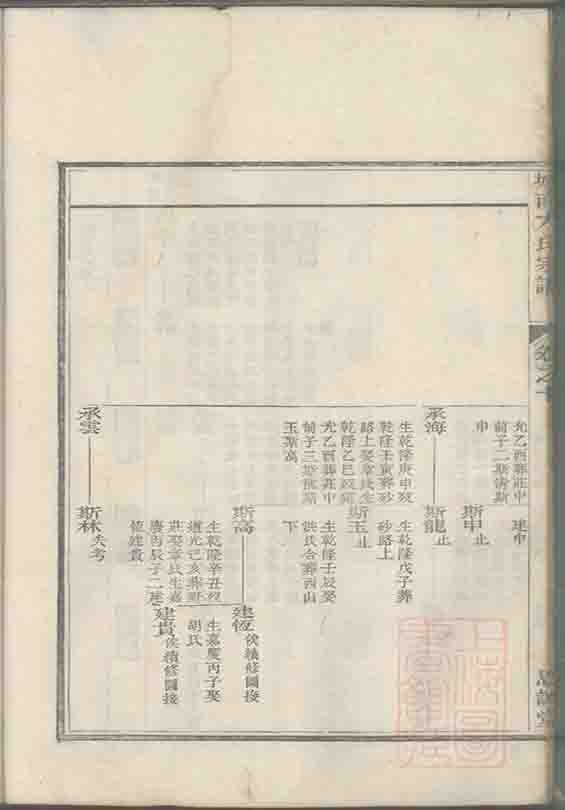 氏宗譜
卷之十
光乙酉葬莊中
前子二斯清斯
申
建中
斯申止
承海
生乾隆庚申歿
乾隆壬寅葬砂
路上娶章氏生
乾隆乙巳歿
光乙酉葬莊中
前子三斯龍斯
玉斯高
斯龍止
生乾隆戊子葬
砂路上
斯玉止
生乾隆壬辰娶
洪氏合葬西山
下
斯高
生乾隆辛丑歿
道光己亥葬
莊娶章氏生嘉
慶丙辰子二建
恆建貴
建恆俟續修圖接
生嘉慶丙子娶
胡氏
建貴俟續修圖接
承雲
斯林失考